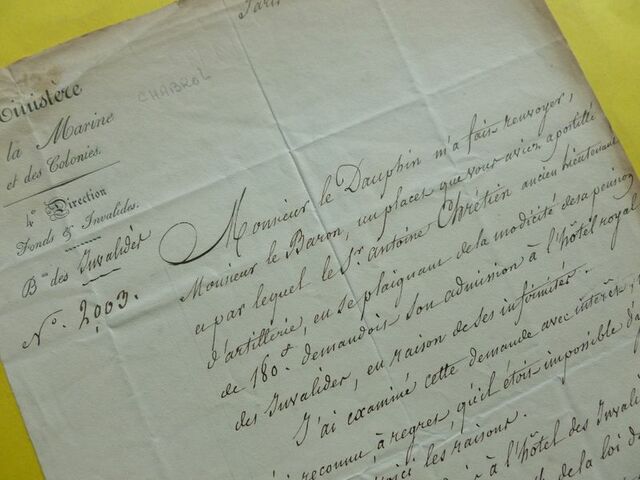 Paris
Ministère
la Marine
et des Colonies.
CHABROL
4e Direction
Fonds & Invalides.
Bau des Invalides
No. 2,003.
Monsieur le Dauphin m'a fait renvoyer,
Monsieur le Baron, un placet que vous aviez apostillé
et par lequel le Sr. Antoine Chrétien ancien lieutenant
d'artillerie, en se plaignant de la modicité de sa pension
de 180f. demandoit son admission à l'hôtel royal
des Invalides, en raison de ses infirmités.
J'ai examiné cette demande avec intérêt,
reconnu, à regret, qu'il étoit impossible d'y
voici les raisons.
à l'hôtel des Invali
de la loi d